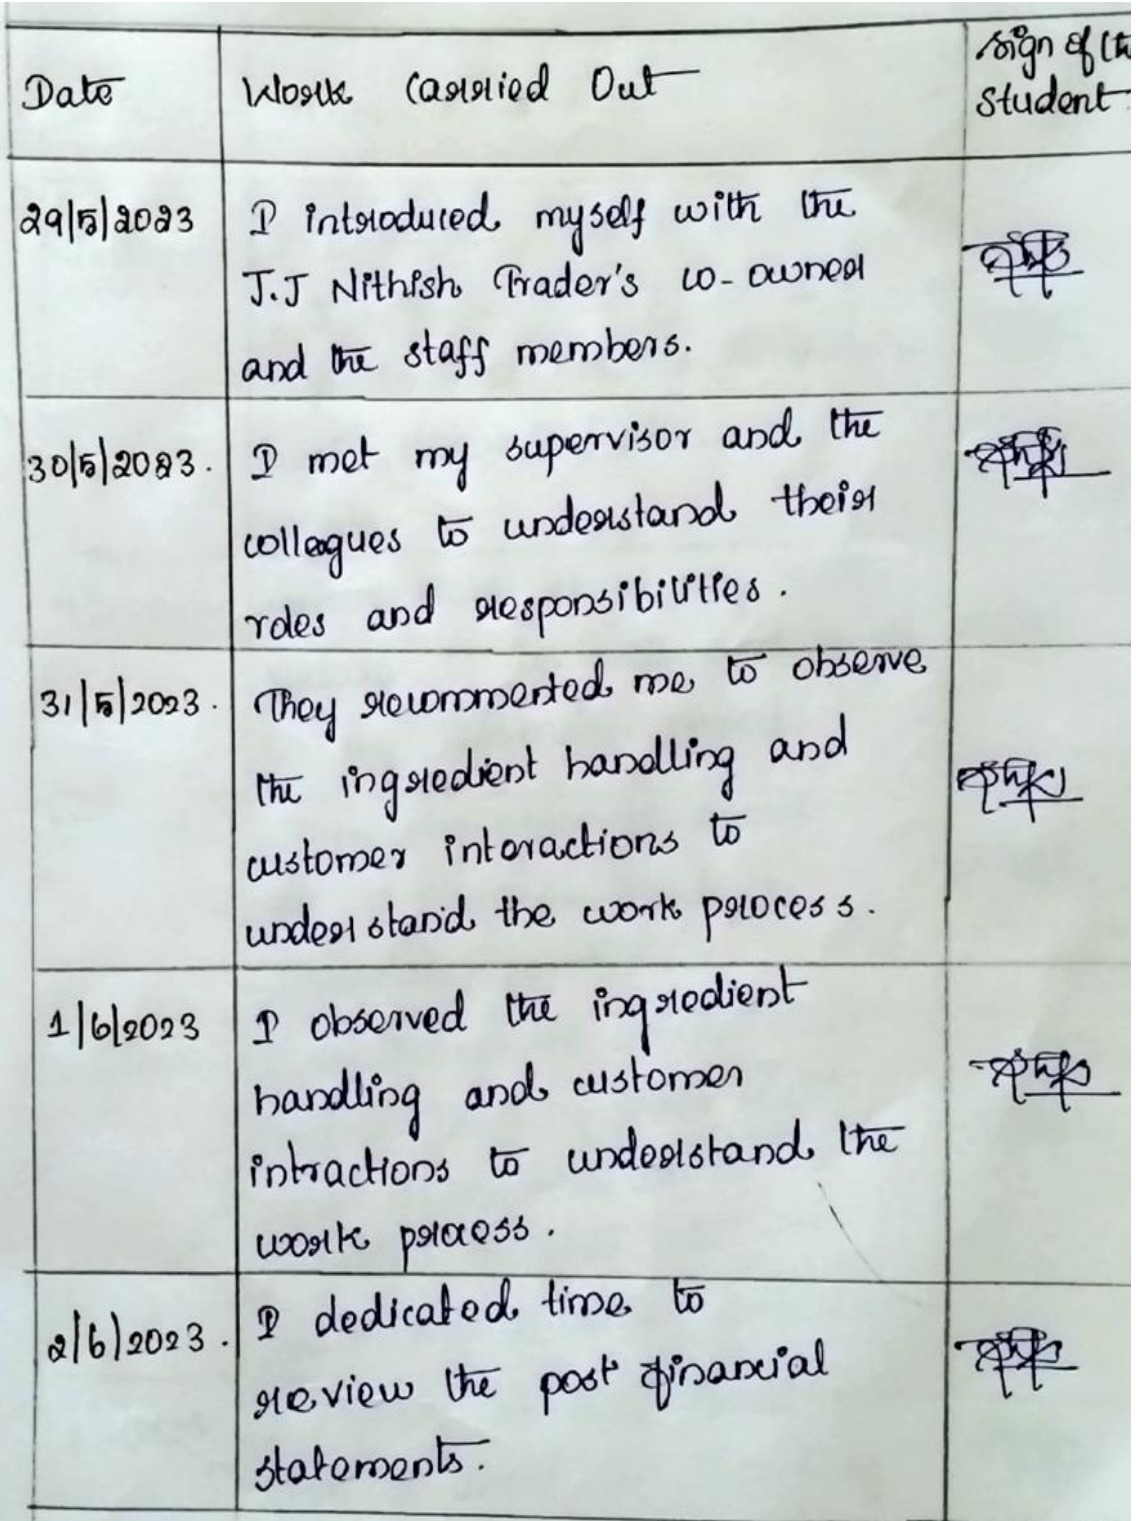 Date
Work Carried Out
Sign of the
student
29/5/2023
I introduced myself with the
J.J Nithish Trader's co-owner
and the staff members.
30/5/2023.
I met my supervisor and the
colleagues to understand their
roles and responsibilities.
31/5/2023.
They recommented me to observe
the ingredient handling and
customer interactions to
understand the work process.
1/6/2023
I observed the ingredient
handling and customer
intractions to understand the
work process.
2/6/2023.
I dedicated time to
review the post financial
statements.